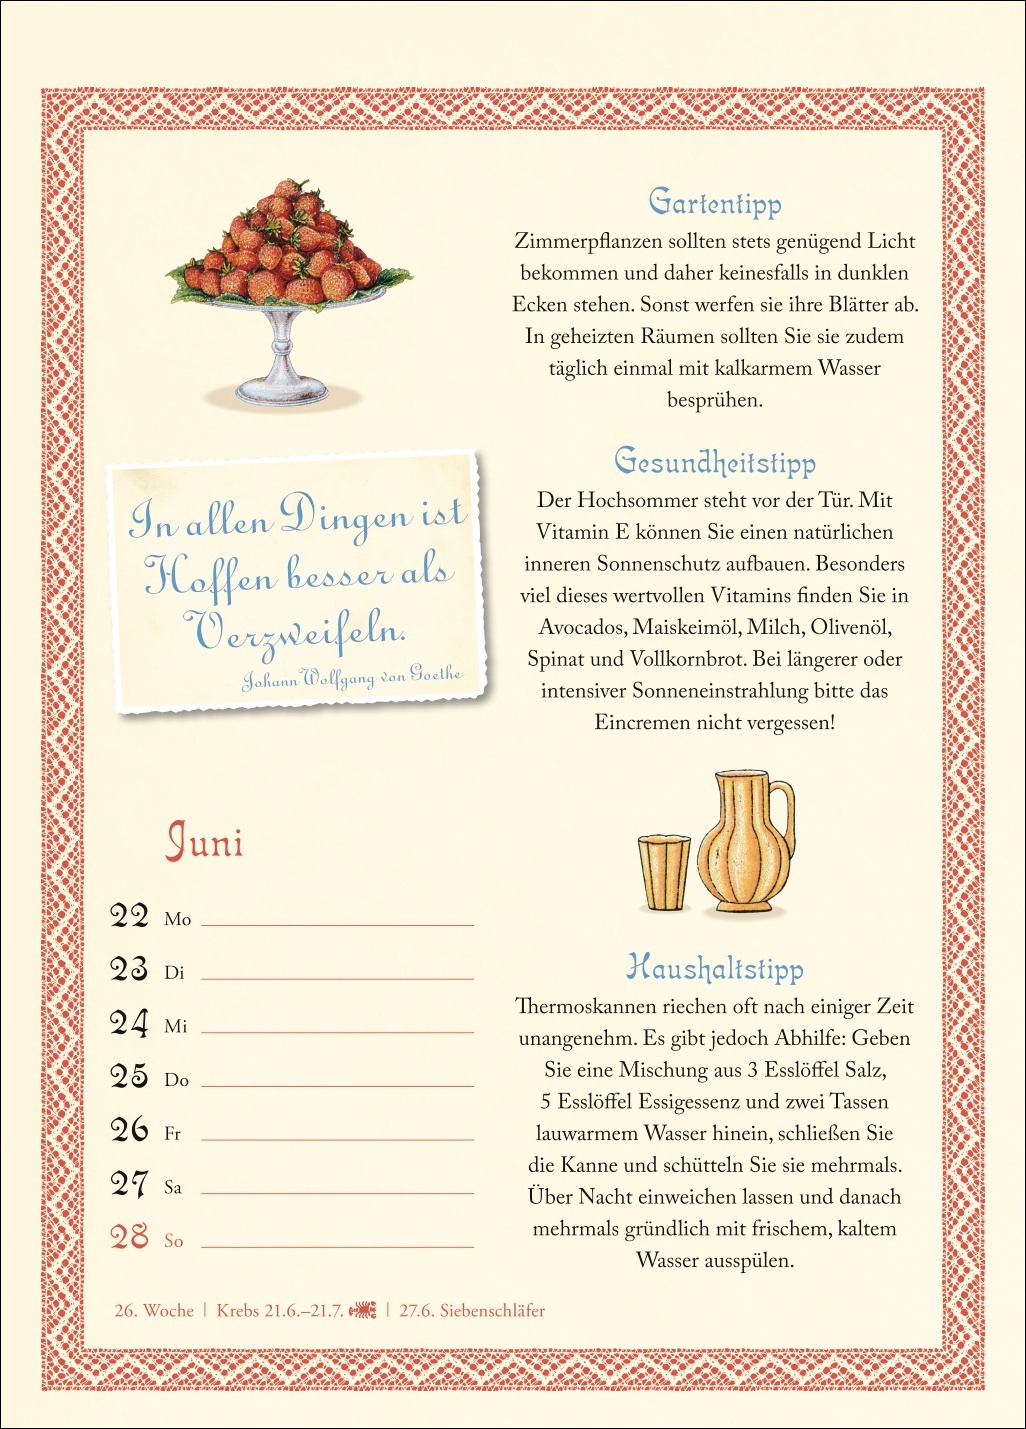 Gartentipp
Zimmerpflanzen sollten stets genügend Licht
bekommen und daher keinesfalls in dunklen
Ecken stehen. Sonst werfen sie ihre Blätter ab.
In geheizten Räumen sollten Sie sie zudem
täglich einmal mit kalkarmem Wasser
besprühen.
In allen Dingen ist
Hoffen besser als
Verzweifeln.
Johann Wolfgang von Goethe
Gesundheitstipp
Der Hochsommer steht vor der Tür. Mit
Vitamin E können Sie einen natürlichen
inneren Sonnenschutz aufbauen. Besonders
viel dieses wertvollen Vitamins finden Sie in
Avocados, Maiskeimöl, Milch, Olivenöl,
Spinat und Vollkornbrot. Bei längerer oder
intensiver Sonneneinstrahlung bitte das
Eincremen nicht vergessen!
Juni
22 Mo
23 Di
24 Mi
25 Do
26 Fr
27 Sa
28 So
Haushaltstipp
Thermoskannen riechen oft nach einiger Zeit
unangenehm. Es gibt jedoch Abhilfe: Geben
Sie eine Mischung aus 3 Esslöffel Salz,
5 Esslöffel Essigessenz und zwei Tassen
lauwarmem Wasser hinein, schließen Sie
die Kanne und schütteln Sie sie mehrmals.
Über Nacht einweichen lassen und danach
mehrmals gründlich mit frischem, kaltem
Wasser ausspülen.
26. Woche | Krebs 21.6.–21.7. | 27.6. Siebenschläfer